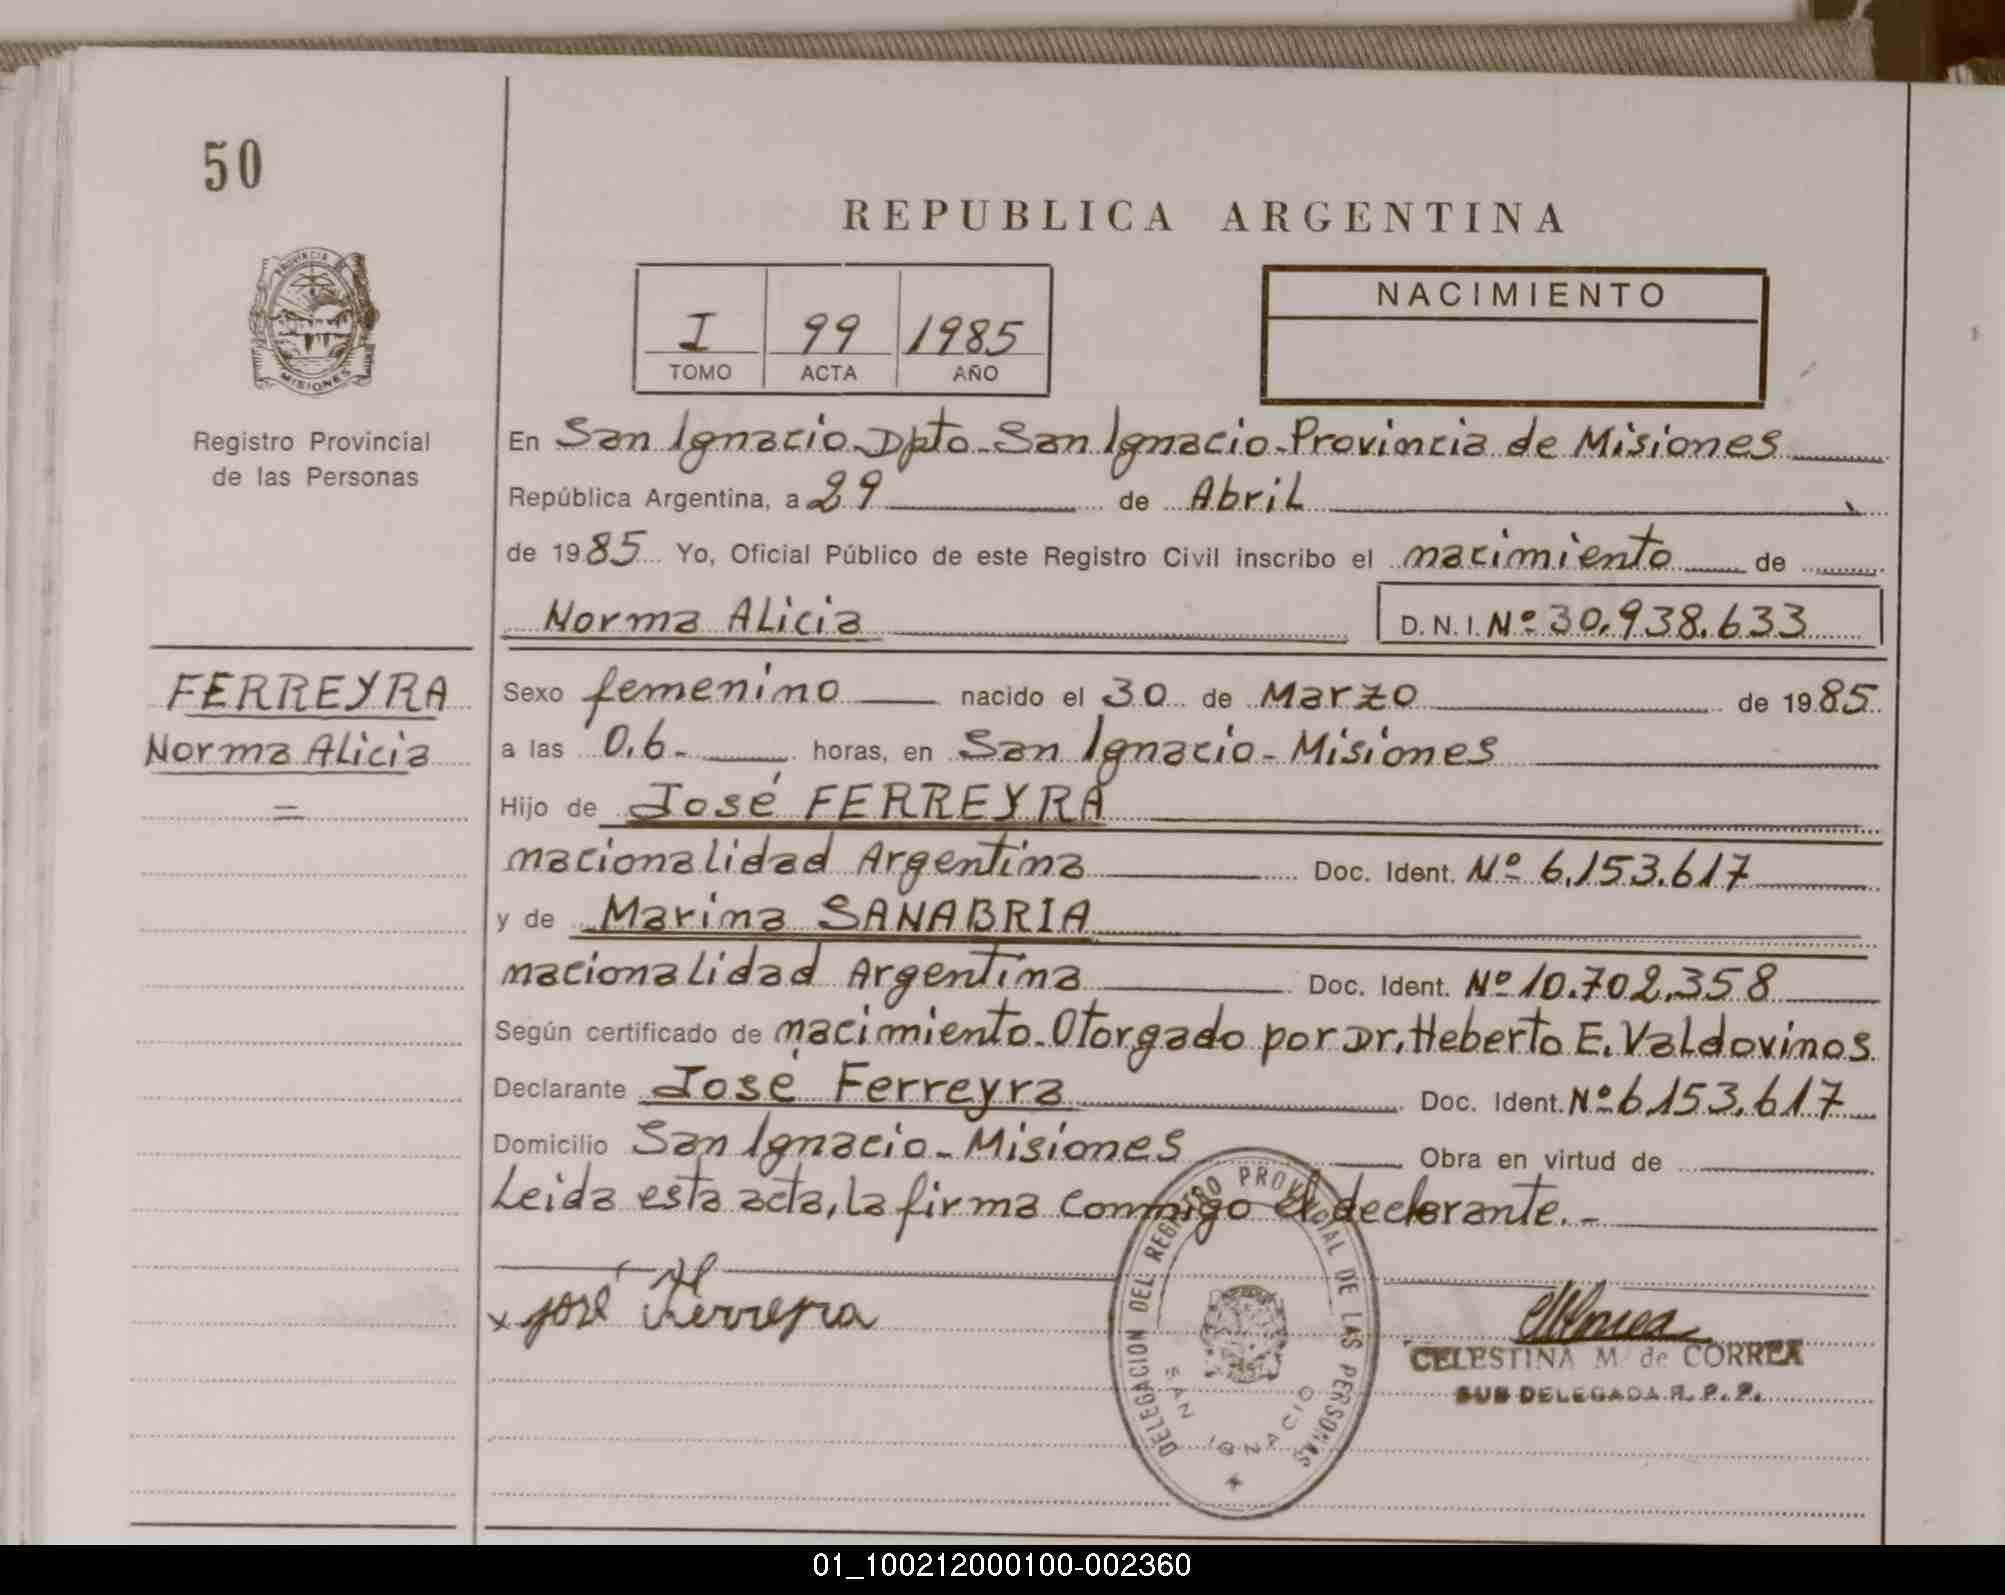 50
REPUBLICA ARGENTINA
PROVINCIA DE
MISIONES
Registro Provincial
de las Personas
I 99 1985
TOMO ACTA AÑO
NACIMIENTO
En San Ignacio-Dpto-San Ignacio-Provincia de Misiones
República Argentina, a 29 de Abril
de 1985 Yo, Oficial Público de este Registro Civil inscribo el nacimiento de
Norma Alicia D.N.I. Nº 30.938.633
FERREYRA
Norma Alicia
=
Sexo femenino nacido el 30 de Marzo de 1985
a las 0,6- horas, en San Ignacio-Misiones
Hijo de José FERREYRA
nacionalidad Argentina Doc. Ident. Nº 6.153.617
y de Marina SANABRIA
nacionalidad Argentina Doc. Ident. Nº 10.702.358
Según certificado de nacimiento-Otorgado por Dr. Heberto E. Valdovinos
Declarante José Ferreyra Doc. Ident. Nº 6.153.617
Domicilio San Ignacio-Misiones Obra en virtud de
Leida esta acta, la firma conmigo el declarante.-
x José Ferreyra
DELEGACION DEL REGISTRO PROVINCIAL DE LAS PERSONAS
SAN IGNACIO
CELESTINA M de CORREA
SUB DELEGADA R. P. P.
01_100212000100-002360